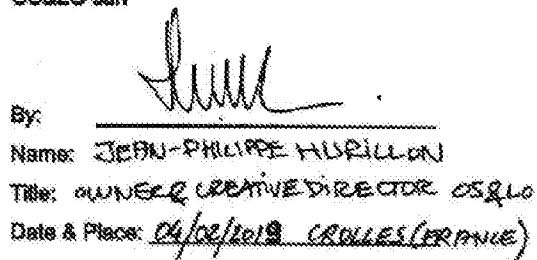 By:
Name: JEAN-PHILIPPE HURILLON
Title: OWNER & CREATIVE DIRECTOR OS&LO
Date & Place: 04/02/2019 CROLLES (FRANCE)